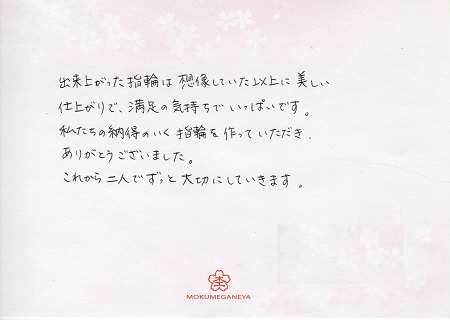 出来上がった指輪は想像していた以上に美しい
仕上がりで、満足の気持ちでいっぱいです。
私たちの納得のいく指輪を作っていただき、
ありがとうございました。
これから二人でずっと大切にしていきます。
MOKUMEGANEYA